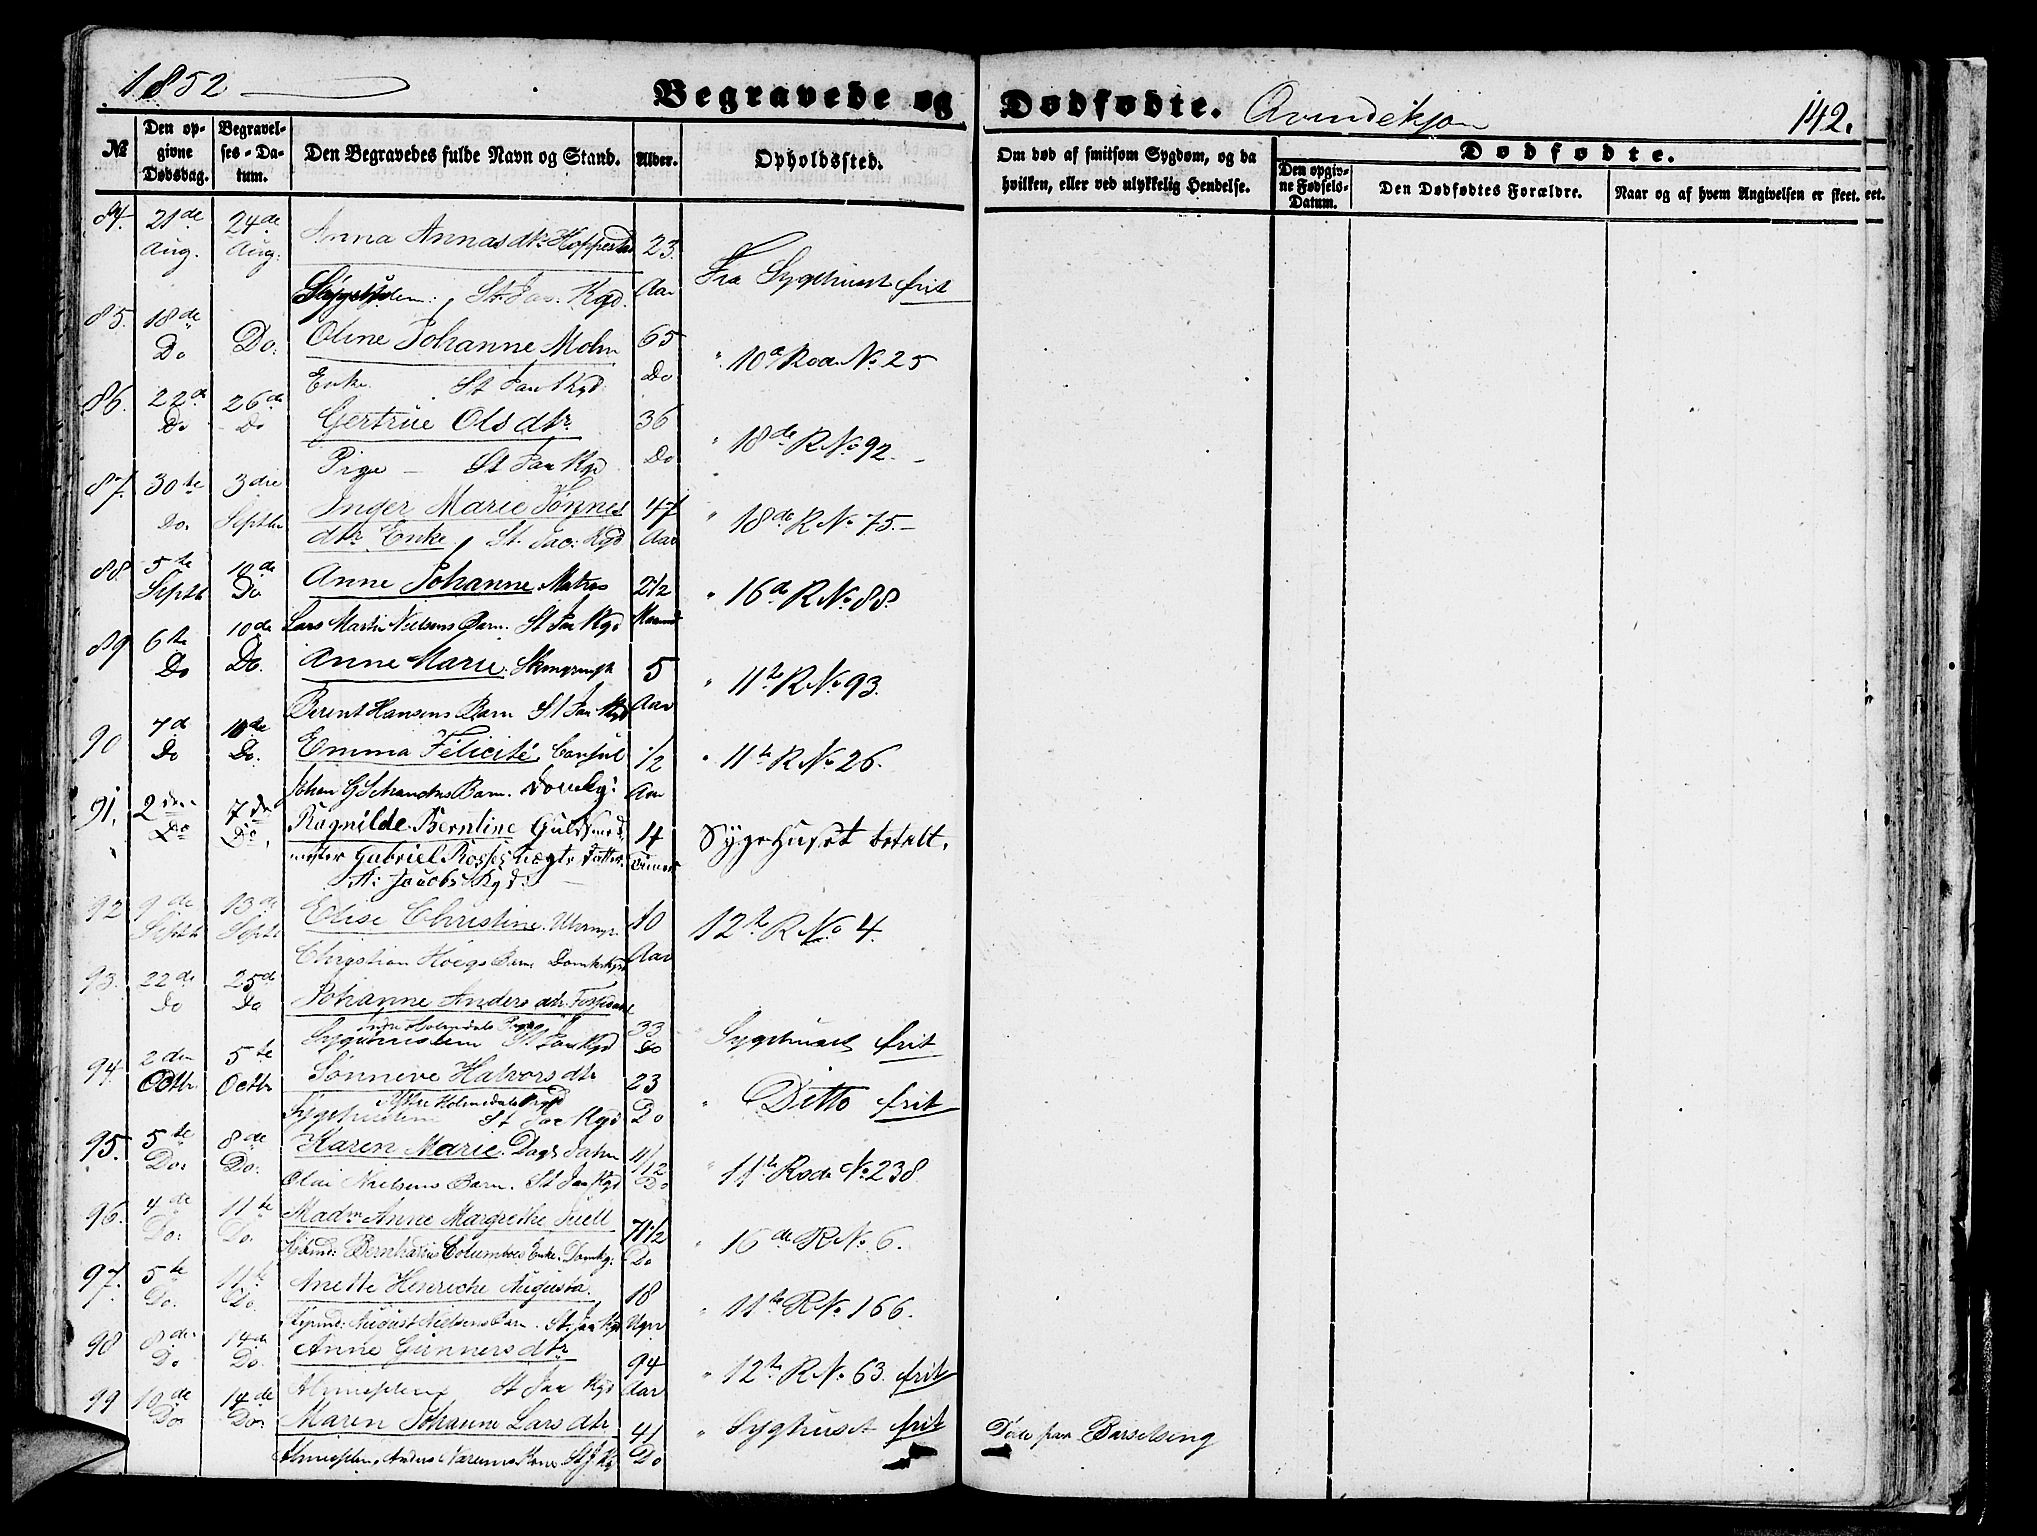 1852
Begravede og
Dødfødte.
142.
№
Den opgivne Dødsdag.
Begravelses-Datum.
Den Begravedes fulde Navn og Stand.
Alder.
Opholdssted.
Om død af smitsom Sygdom, og da hvilken, eller ved ulykkelig Hendelse.
Dødfødte.
Den opgivne Fødsels-Datum.
Den Dødfødtes Forældre.
Naar og af hvem Angivelsen er skeet.
eet.
84. 21de 24de Anna Annasdtr 23
Aug. Aug: St. Jac. Kgd. Aar Fra Sygehuset frit
85. 18de Oline Johanne Mohn 65
Do Do: Enke St Jac Kgd. Do " 10de Rode No 25
86. 22de 26de Gertrue Olsdtr 36
Do Do Pige — St Jac Kgd Do " 18de R No 92.
87. 30te 3die Inger Marie Tønnes 47
Do. Septbr dtr Enke, St. Jac: Kgd Aar " 18de R No 75.
88. 5te 10de Anne Johanne Matros 2 1/2
Septb Do Lars Martin Nielsens Barn. St Jac Kgd Maaned " 16de R No 88.
89 6te 10de Anne Marie. 5
Do Do. Berent Hansens Barn St Jac Kgd Aar " 11te R No 93.
90 7de 11de Emma Felicité, Consul 1/2
Do Do. Johan G Schrøders Barn. Aar " 11te R No 26.
91. 2den 7de Ragnilde Berntine Guldsmed 4
Do Do. mester Gabriel Rosses ægte Datter. Sygehuset betalt.
St: Jacobs Kgd:
92 9de 13de Elise Christine. Uhrmgr. 10
Septb Septb Christian Høegs Barn Domkirkegd Aar 12te R No 4.
93. 22de 25de Johanne Andersdtr 33
Do Do Indre Holmedals Præg
Sygehuslem St Jac Kgd Do " Sygehuset frit
94. 2den 5te Sønneve Halvorsdtr 23
Octbr Octbr Ystre Holmedals Prgd
Sygehuslem St Jac Kgd Do " Ditto frit
95. 5te 8de Karen Marie. 1 1/12
Do: Do: Olai Nielsens Barn. St Jac Kgd Do " 11te Rode No 238
96. 4de 11te Madm Anne Margrethe Juell 71 1/2
Do: Do. Bernhardus Columbus Enke. Domkg: Do " 16de R No 6.
97. 5te 11te Anette Henricke Augusta. 18
Do. Do. August Nielsens Barn. St. Jac Kgd Uger " 11te R No 166.
98 8de 14de Anne Gunnersdtr 94
Do Do. Almisslem, St Jac Kgd Aar " 12te R No 63. frit
99 10de 14de Maren Johanne Larsdtr. 41
Do: Do: Almisslem, St J Kg Do " Sygehuset frit
Døde paa Barselseng